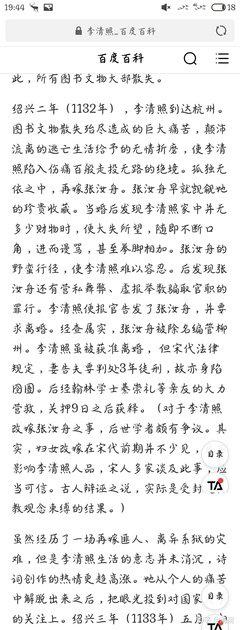 19:44
18
李清照_百度百科
百度百科
此，所有图书文物大部散失。
绍兴二年（1132年），李清照到达杭州。
图书文物散失殆尽造成的巨大痛苦，颠沛
流离的逃亡生活给予的无情折磨，使李清
照陷入伤痛百般走投无路的绝境。孤独无
依之中，再嫁张汝舟。张汝舟早就觊觎她
的珍贵收藏。当婚后发现李清照家中并无
多少财物时，便大失所望，随即不断口
角，进而谩骂，甚至拳脚相加。张汝舟的
野蛮行径，使李清照难以容忍。后发现张
汝舟还有营私舞弊、虚报举数骗取官职的
罪行。李清照便报官告发了张汝舟，并要
求离婚。经查属实，张汝舟被除名编管柳
州。李清照虽被获准离婚，但宋代法律
规定，妻告夫要判处3年徒刑，故亦身陷
囹圄。后经翰林学士綦崇礼等亲友的大力
营救，关押9日之后获释。（对于李清照
改嫁张汝舟之事，后世学者颇有争议。其
实，妇女改嫁在宋代前期并不少见，
影响李清照人品，宋人多家谈及此事，应
当可信。古人辩诬之说，实际是受封
教观念束缚的结果。）
目录
TA
虽然经历了一场再嫁匪人、离异系狱的灾
难，但是李清照生活的意志并未消沉，诗
词创作的热情更趋高涨。她从个人的痛苦
中解脱出来之后，把眼光投到对国家
的关注上。绍兴三年（1133年）五月
目录
TA